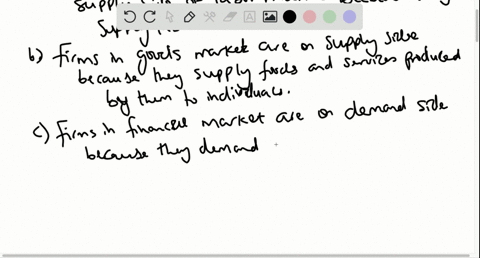 supply
b) Firms in goods market are on supply side
because they supply foods and services produced
by them to individuals.
c) Firms in financial market are on demand side
because they demand